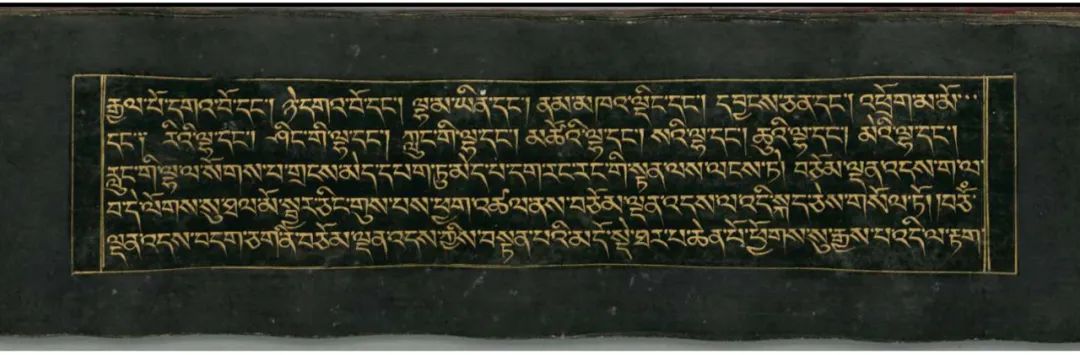 རྒྱལ་པོ་དགའ་བོ་དང༌། ཉེ་དགའ་བོ་དང༌། ལྷ་མ་ཡིན་དང༌། ནམ་མཁའ་ལྡིང་དང༌། དབྱངས་ཅན་དང༌། འཕྲོག་མ་མོ་
དང༌། རིའི་ལྷ་དང༌། ཤིང་གི་ལྷ་དང༌། ཀླུང་གི་ལྷ་དང༌། མཚོའི་ལྷ་དང༌། སའི་ལྷ་དང༌། ཆུའི་ལྷ་དང༌། མེའི་ལྷ་དང༌།
རླུང་གི་ལྷ་ལ་སོགས་པ་གྲངས་མེད་དཔག་ཏུ་མེད་པ་དག་རང་རང་གི་སྟན་ལས་ལངས་ཏེ། བཅོམ་ལྡན་འདས་ག་ལ་
བ་དེ་ལོགས་སུ་ཐལ་མོ་སྦྱར་ཅིང་གུས་པས་ཕྱག་འཚལ་ནས་བཅོམ་ལྡན་འདས་ལ་འདི་སྐད་ཅེས་གསོལ་ཏོ། །བཅོཾ་
ལྡན་འདས་བདག་ཅག་ནི་བཅོམ་ལྡན་འདས་ཀྱིས་བསྟན་པའི་མདོ་སྡེ་ཐར་པ་ཆེན་པོ་ཕྱོགས་སུ་རྒྱས་པ་འདི་ལ་རྟག་